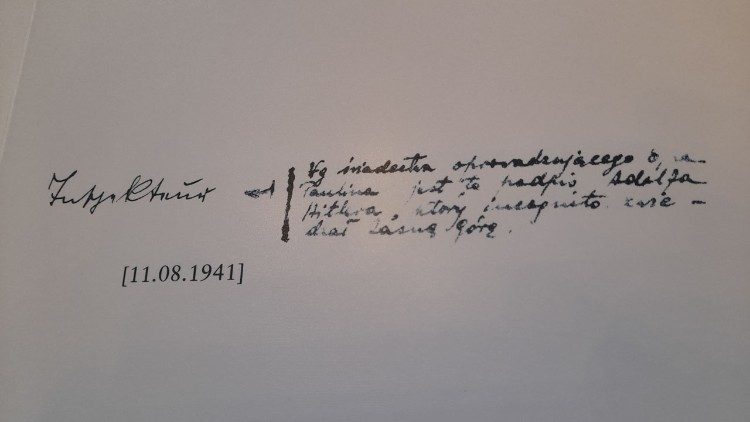 Inspekteur
Wg świadectwa oprowadzającego O, za-
Paulina jest to podpis Adolfa
Hitlera, który incognito zwie-
dzał Jasną Górę.
[11.08.1941]